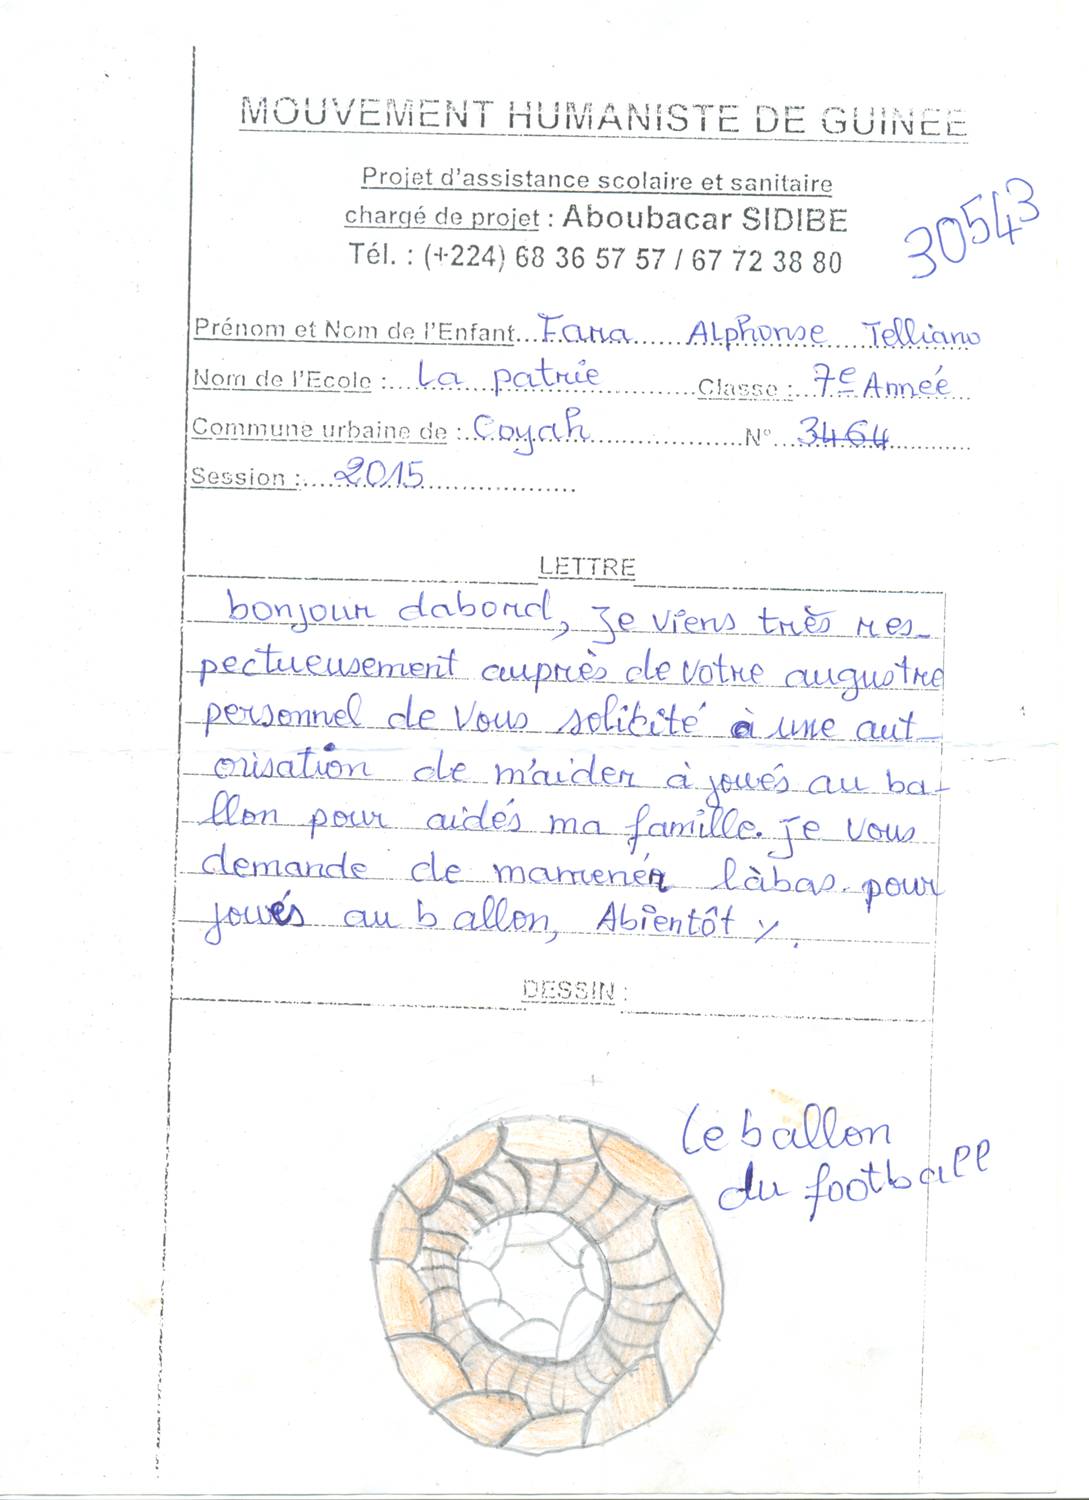 MOUVEMENT HUMANISTE DE GUINEE
Projet d'assistance scolaire et sanitaire
chargé de projet : Aboubacar SIDIBE
Tél. : (+224) 68 36 57 57 / 67 72 38 80
30543
Prénom et Nom de l'Enfant...Fara Alphonse Telliano
Nom de l'Ecole :...La patrie...Classe :...7e Anneé...
Commune urbaine de :..Coyah...N°...3464...
Session :....2015...
LETTRE
bonjour dabord, Je viens très res-
pectueusement auprès de votre augustre
personnel de Vous solicité à une aut-
orisation de m'aider à joués au ba-
llon pour aidés ma famille. Je Vous
demande de mamenér làbas. pour
joués au ballon, Abientôt
DESSIN :
Le ballon
du football